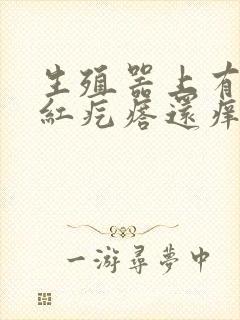 生殖器上有
紅疙瘩還痒
一游尋夢中